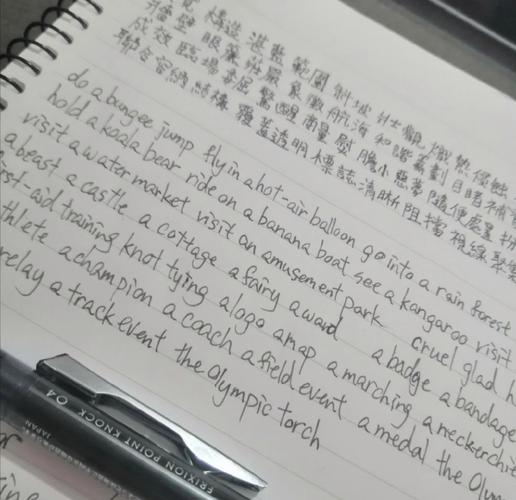 構造 進展 範圍 斜坡 壯觀 熾熱 侵蝕
牆壁 眼簾 莊嚴 象徵 航海 和諧 策劃 目睹 補
成效 臨場 委屈 驚醒 商量 慰 膽小 惡夢 隨便 處置
聯合 容納 結構 覆蓋 透明 標誌 清晰 阻擋 視線 聚集
do a bungee jump fly in a hot-air balloon go into a rain forest
hold a koala bear ride on a banana boat see a kangaroo visit
visit a water market visit an amusement park cruel glad
a beast a castle a cottage a fairy award a badge a bandage
first-aid training knot tying a logo a map a marching a neckerchie
athlete a champion a coach a field event a medal the Olym
relay a track event the Olympic torch
FRIXION POINT KNOCK 04
JAPAN